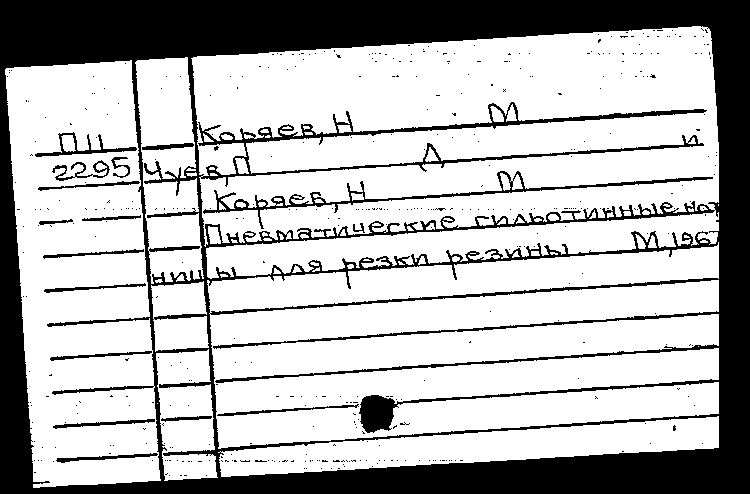 П11 Коряев, Н М
2295 Чуев, П Д и
Коряев, Н М
Пневматические гильотинные нож
ницы для резки резины М, 1967